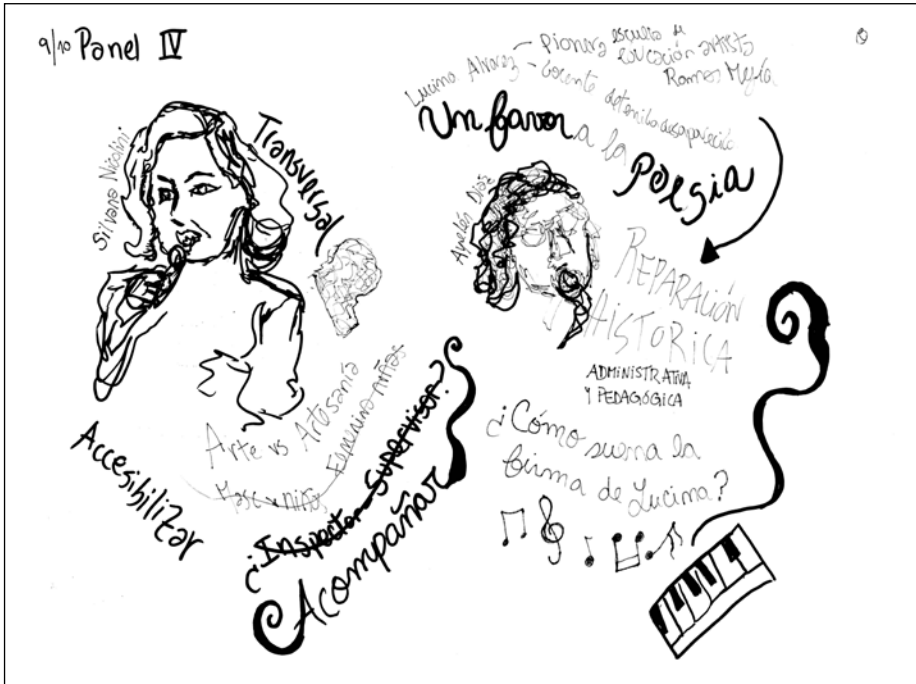 9/10 Panel IV
Silvana Nicolini
Transversal
Accesibilizar
Arte vs Artesanía
Masc niños Femenino niñas
¿Inspector Supervisor?
Acompañar
Lucina Alvarez - pionera escuela de
educación artista
Ramos Mejía
- docente detenida desaparecida
Un favor a la Poesia
Ayelén Díaz
REPARACIÓN
HISTORICA
ADMINISTRATIVA
Y PEDAGÓGICA
¿Cómo suena la
firma de Lucina?